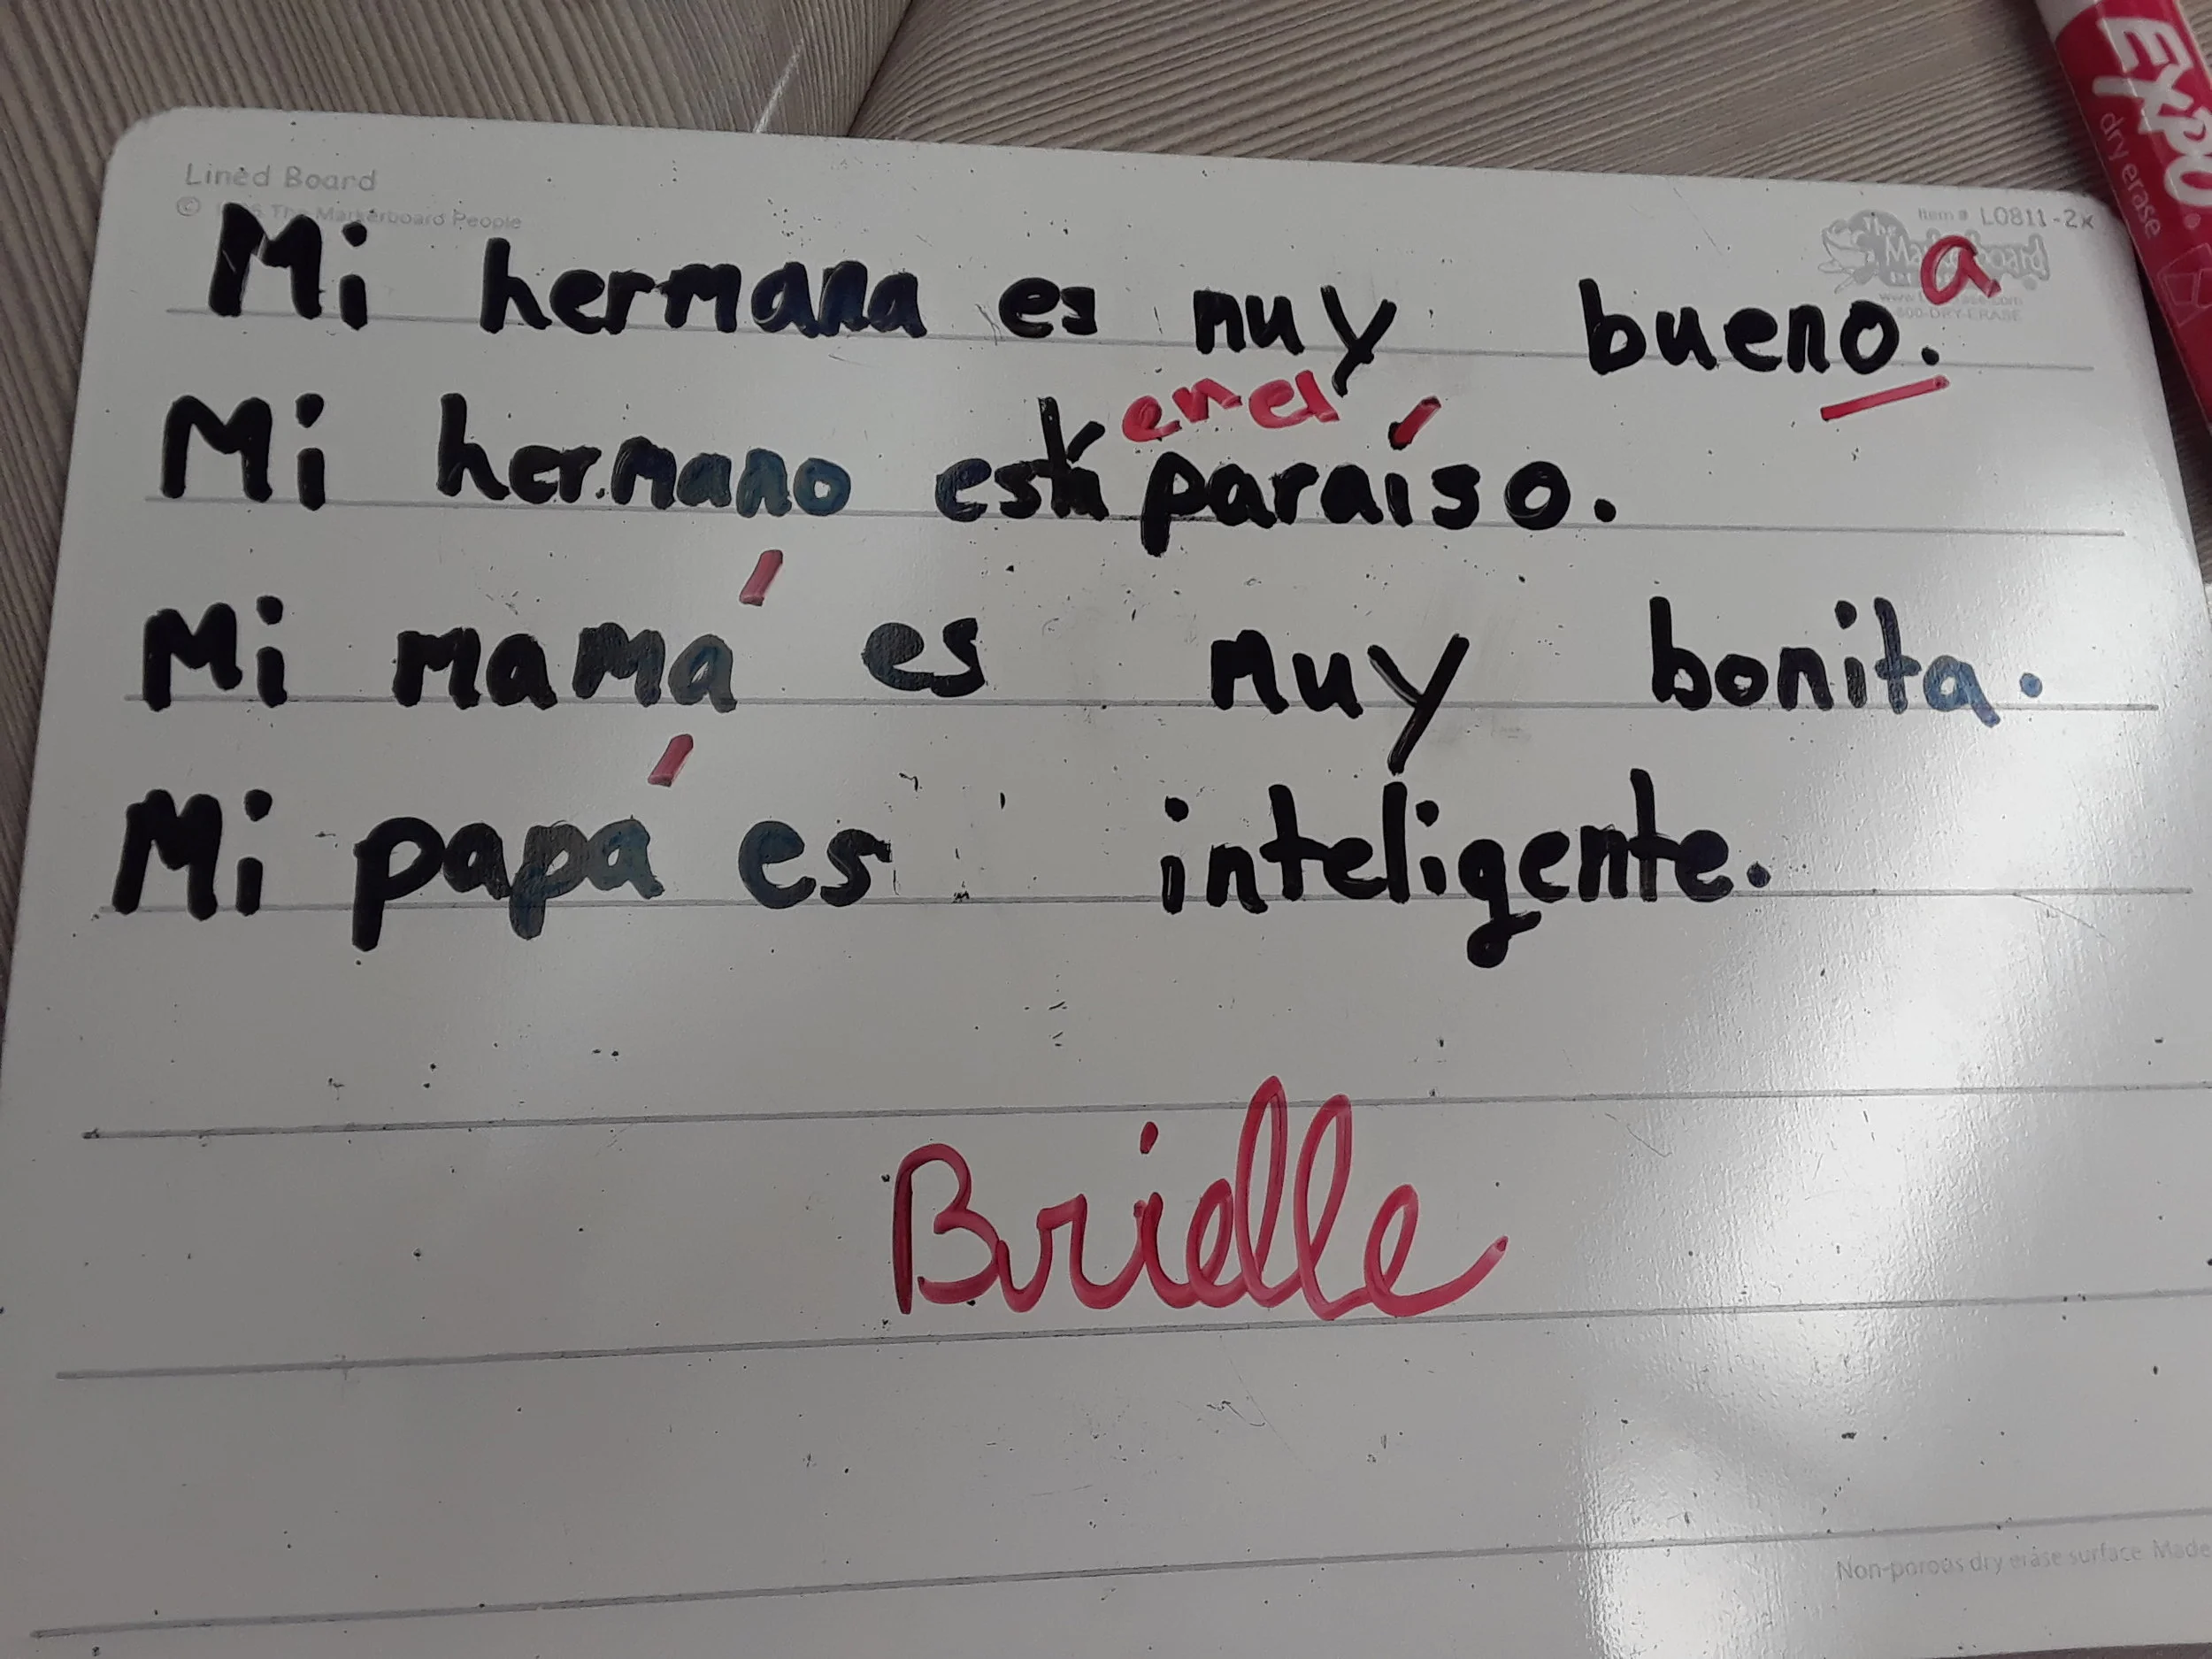 Lined Board
© The Markerboard People
Item # L0811-2x
The Markerboard
800-DRY-ERASE
EXPO
dry erase
Mi hermana es muy bueno.
a
Mi hermano está paraíso.
en el
Mi mamá es muy bonita.
Mi papá es inteligente.
Brielle
Non-porous dry erase surface Made